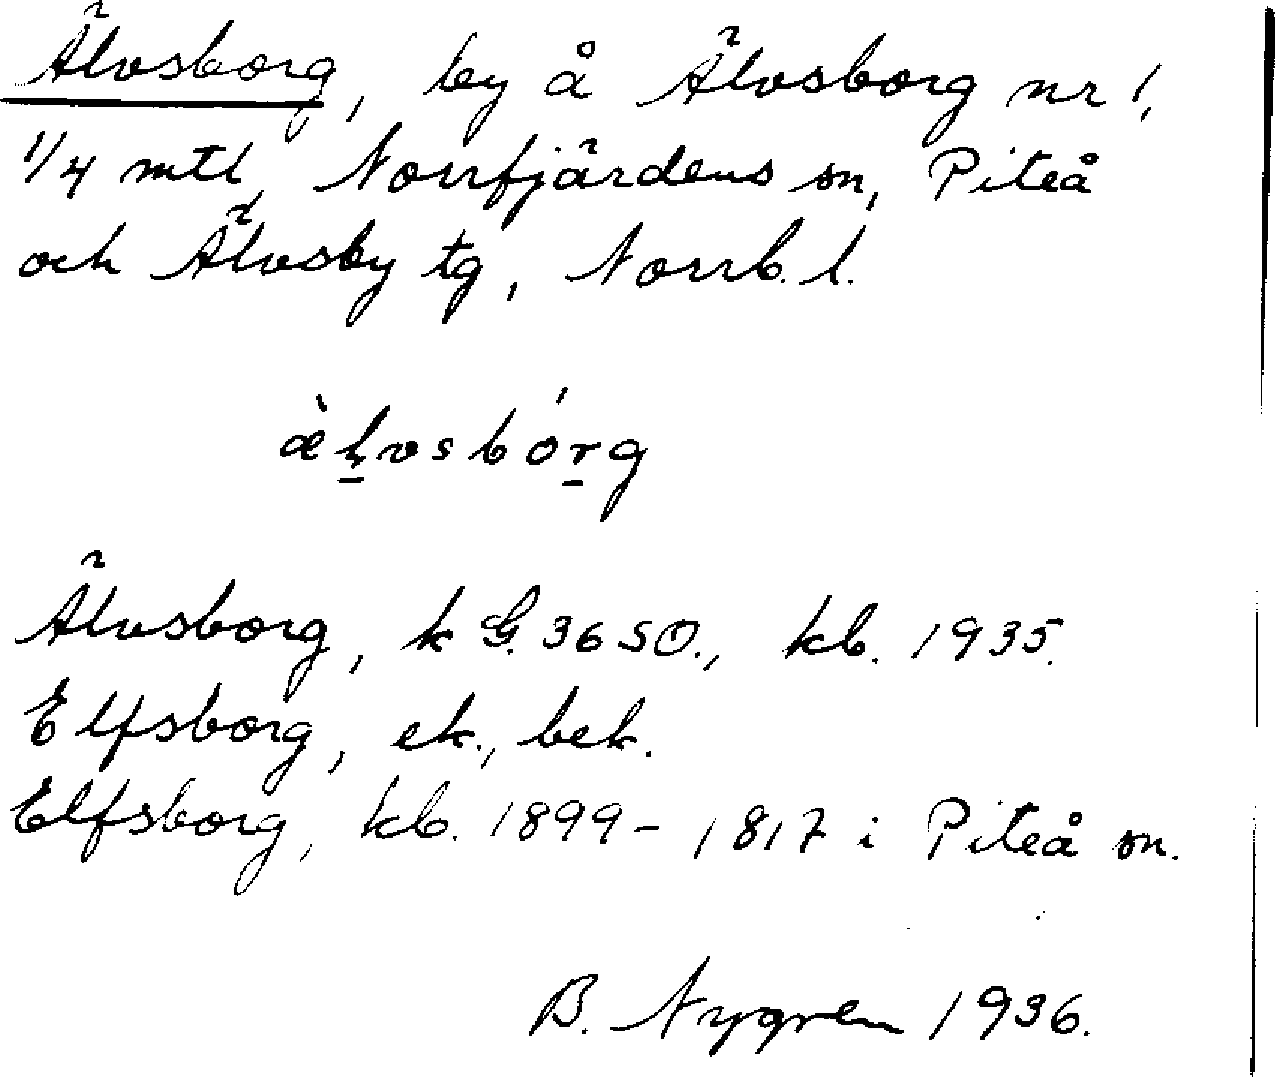 Älvsborg, by å Älvsborg nr 1,
1/4 mtl, Norrfjärdens sn, Piteå
och Älvsby tg, Norrb. l.
æ̀ḷvsbórg
Älvsborg, k G. 36 SO., kb. 1935.
Elfsborg, ek., bek.
Elfsborg, kb. 1899 - 1817 i Piteå sn.
B. Nygren 1936.